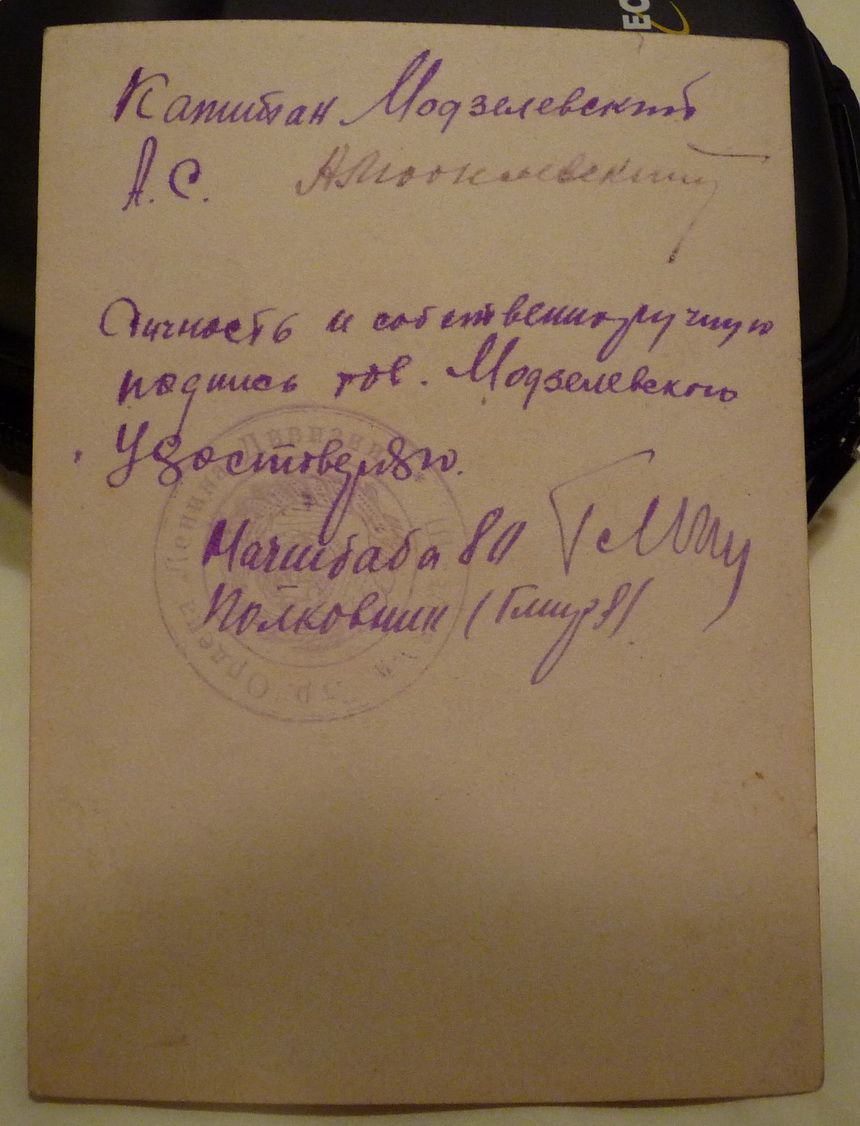 Капитан Модзелевский
А.С. АМодзелевский
Личность и собственноручную
подпись тов. Модзелевского
Удостоверяю.
Начштаба 8
Полковник
Ордена Ленина